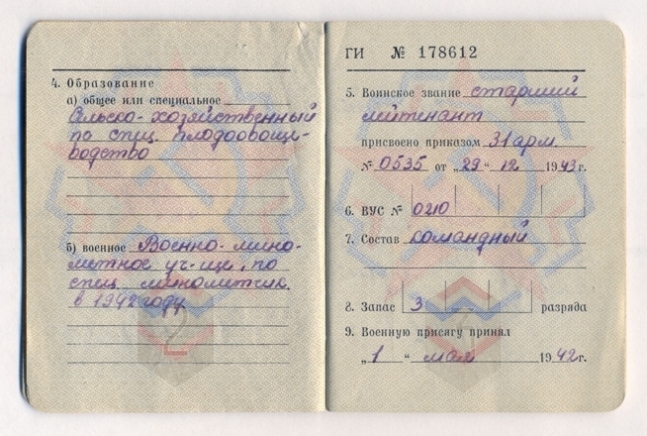 4. Образование
а) общее или специальное
Сельско-хозяйственный
по спец. плодоовоще-
водство
б) военное Военно-мино-
метное уч-ще, по
спец. минометчик
в 1942 году
2
ГИ № 178612
5. Воинское звание старший
лейтенант
присвоено приказом 31 арм.
№ 0535 от „29“ 12 1943 г.
6. ВУС № 0210
7. Состав командный
8. Запас 3 разряда
9. Военную присягу принял
„1“ мая 1942 г.